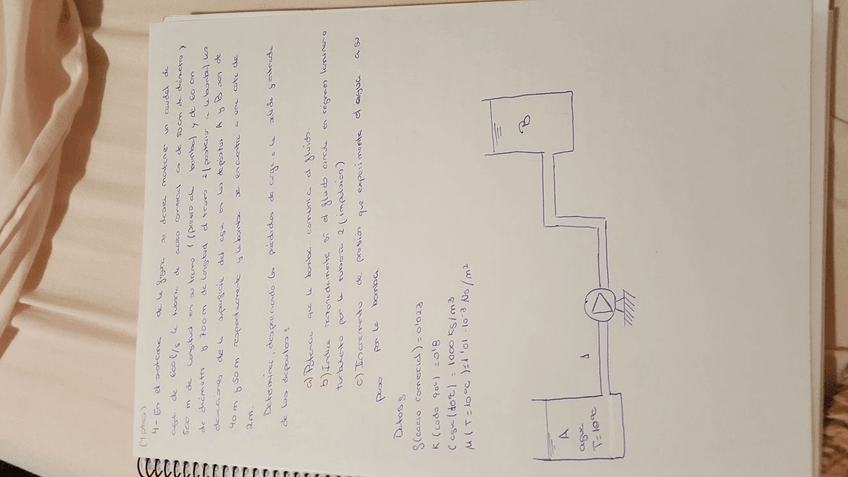 (4 ptos)
4.- En el sistema de la figura se desea mantener un caudal de
agua de 600 l/s la tubería de acero comercial es de 50 cm de diámetro y
500 m de longitud en su tramo 1 (previo a la bomba) y de 60 cm
de diámetro y 700 m de longitud el tramo 2 (posterior a la bomba) las
elevaciones de la superficie del agua en los depósitos A y B son de
40 m y 50 m respectivamente y la bomba se encuentra a una cota de
2m.
Determine, despreciando las pérdidas de carga a la salida y entrada
de los depósitos:
a) Potencia que la bomba comunica al fluido.
b) Indica razonadamente si el fluido circula en régimen laminar o
turbulento por la tubería 2 (impulsión)
c) Incremento de presión que experimenta el agua a su
paso por la bomba
Datos:
f(acero comercial) = 0'023
K (codo 90º) = 0'8
ρ agua (10ºC) = 1000 Kg/m3
μ (T = 10ºC) = 1'01 · 10-3 Ns/m2
A
agua
T=10ºC
1
B